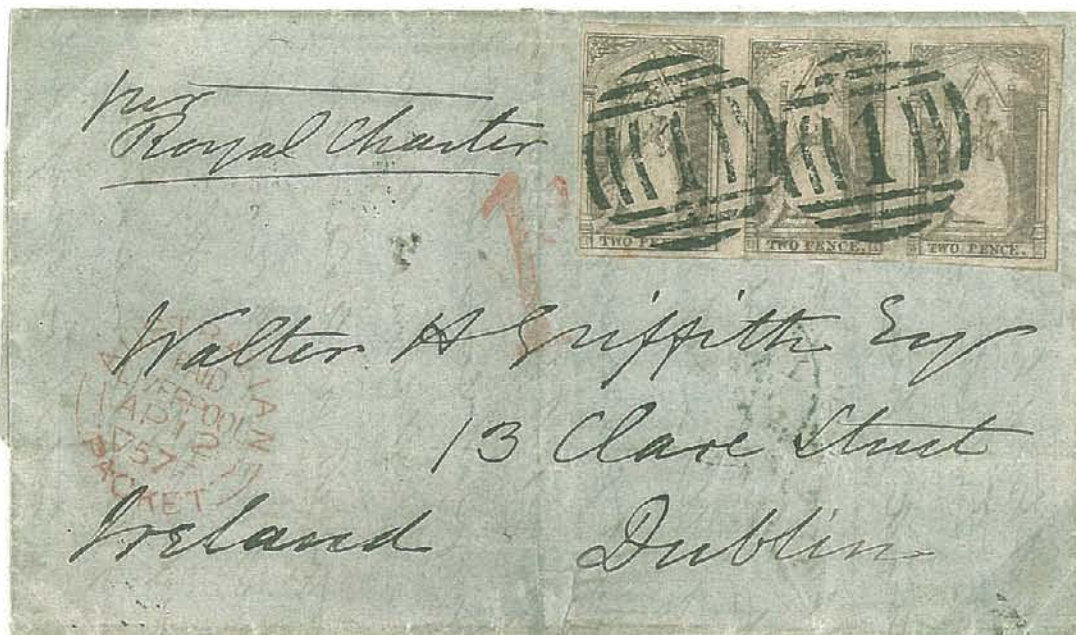 per
Royal Charter
1
1
1
TWO PENCE.
TWO PENCE.
TWO PENCE.
Walter H Griffith Esq
13 Clare Street
Ireland Dublin
LIVERPOOL
AP 12
57
PACKET